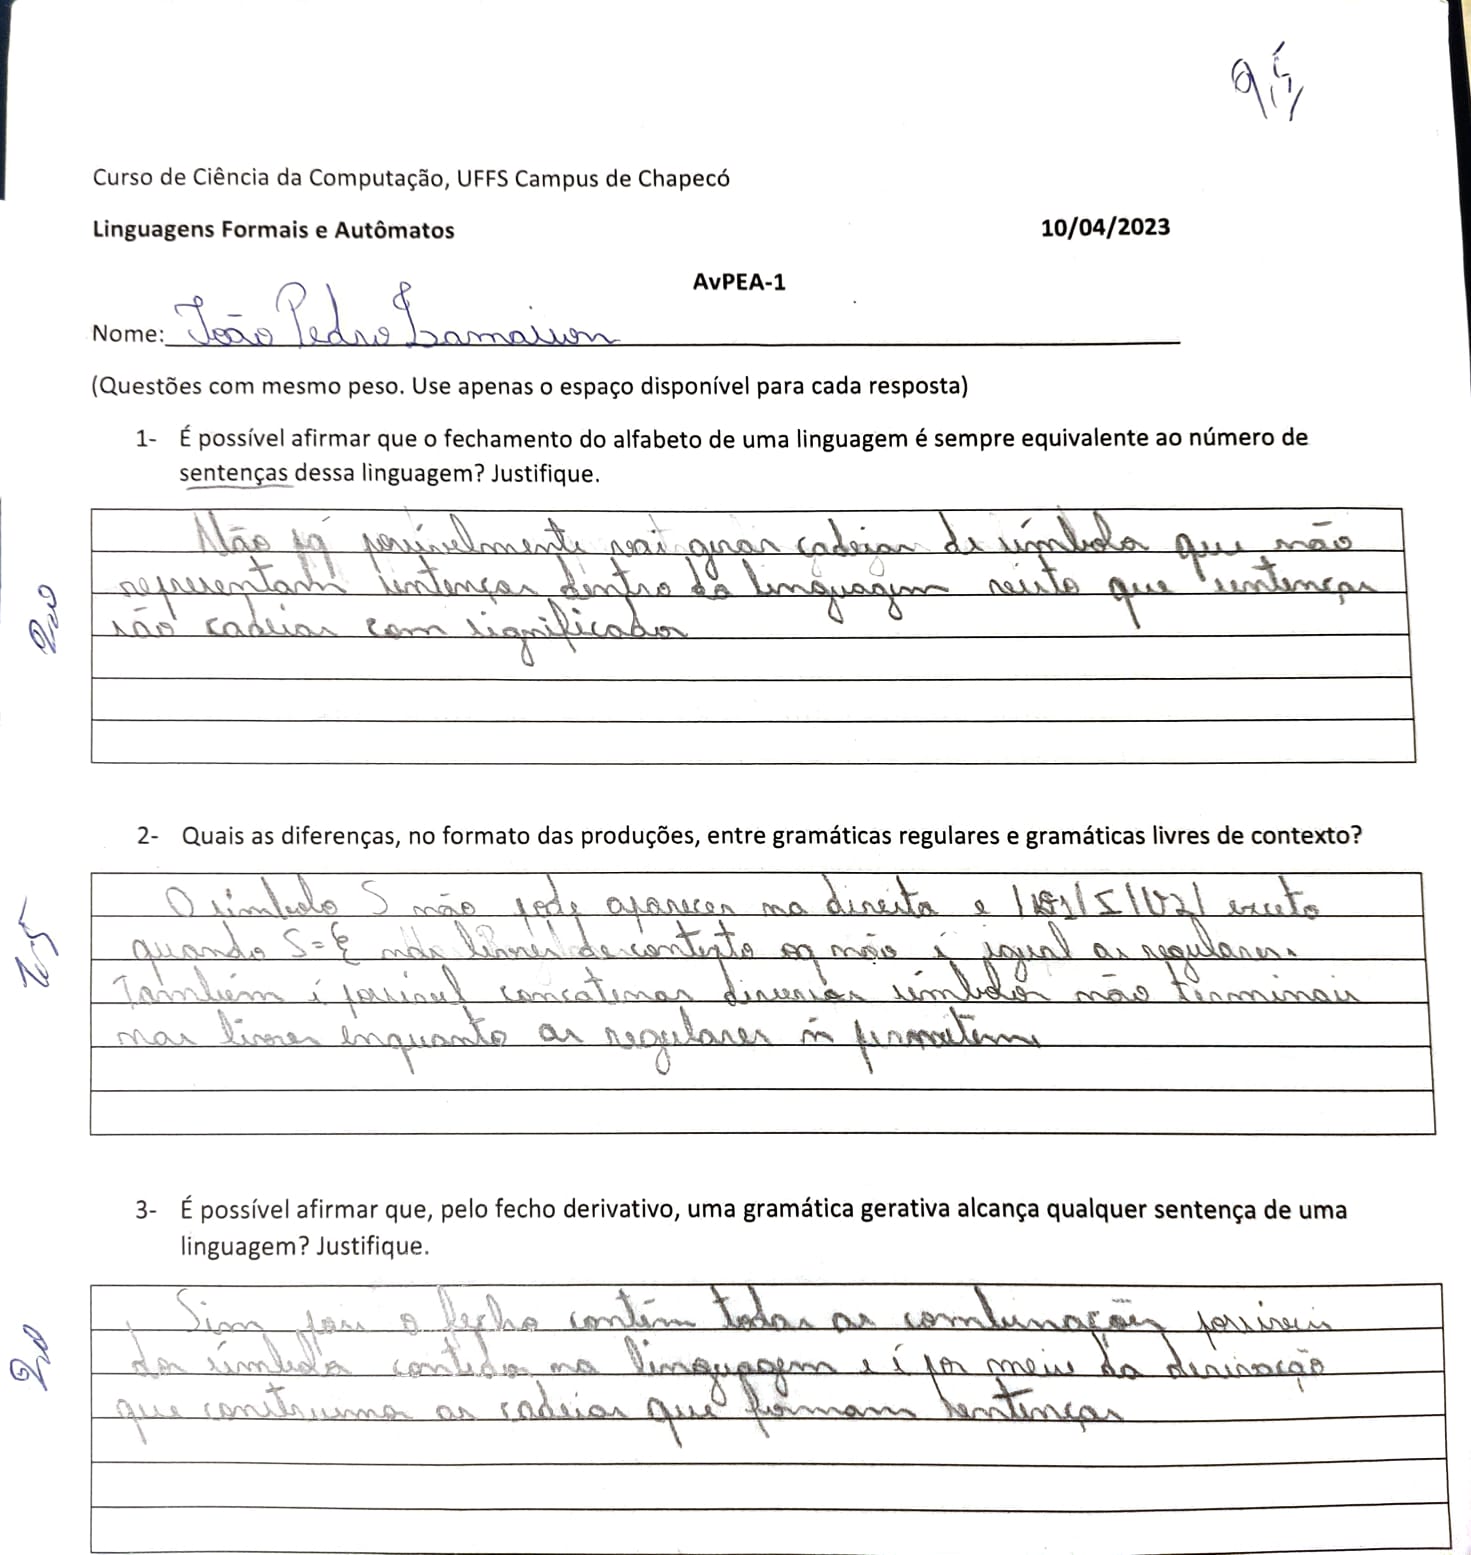 9,5
Curso de Ciência da Computação, UFFS Campus de Chapecó
Linguagens Formais e Autômatos 10/04/2023
AvPEA-1
Nome: João Pedro
(Questões com mesmo peso. Use apenas o espaço disponível para cada resposta)
1- É possível afirmar que o fechamento do alfabeto de uma linguagem é sempre equivalente ao número de
sentenças dessa linguagem? Justifique.
Não pq possivelmente vai gerar cadeias de símbolos que não
representam sentenças dentro da linguagem visto que sentenças
são cadeias com significados
2,0
2- Quais as diferenças, no formato das produções, entre gramáticas regulares e gramáticas livres de contexto?
O símbolo S não pode aparecer na direita e exceto
quando S=ε nas livres de contexto pq não é igual as regulares.
Também é possível concatenar diversos símbolos não terminais
nas livres enquanto as regulares ñ permitem
1,5
3- É possível afirmar que, pelo fecho derivativo, uma gramática gerativa alcança qualquer sentença de uma
linguagem? Justifique.
Sim pois o fecho contém todas as combinações possíveis
dos símbolos contidos na linguagem e é por meio da derivação
que construimos as cadeias que formam sentenças
2,0